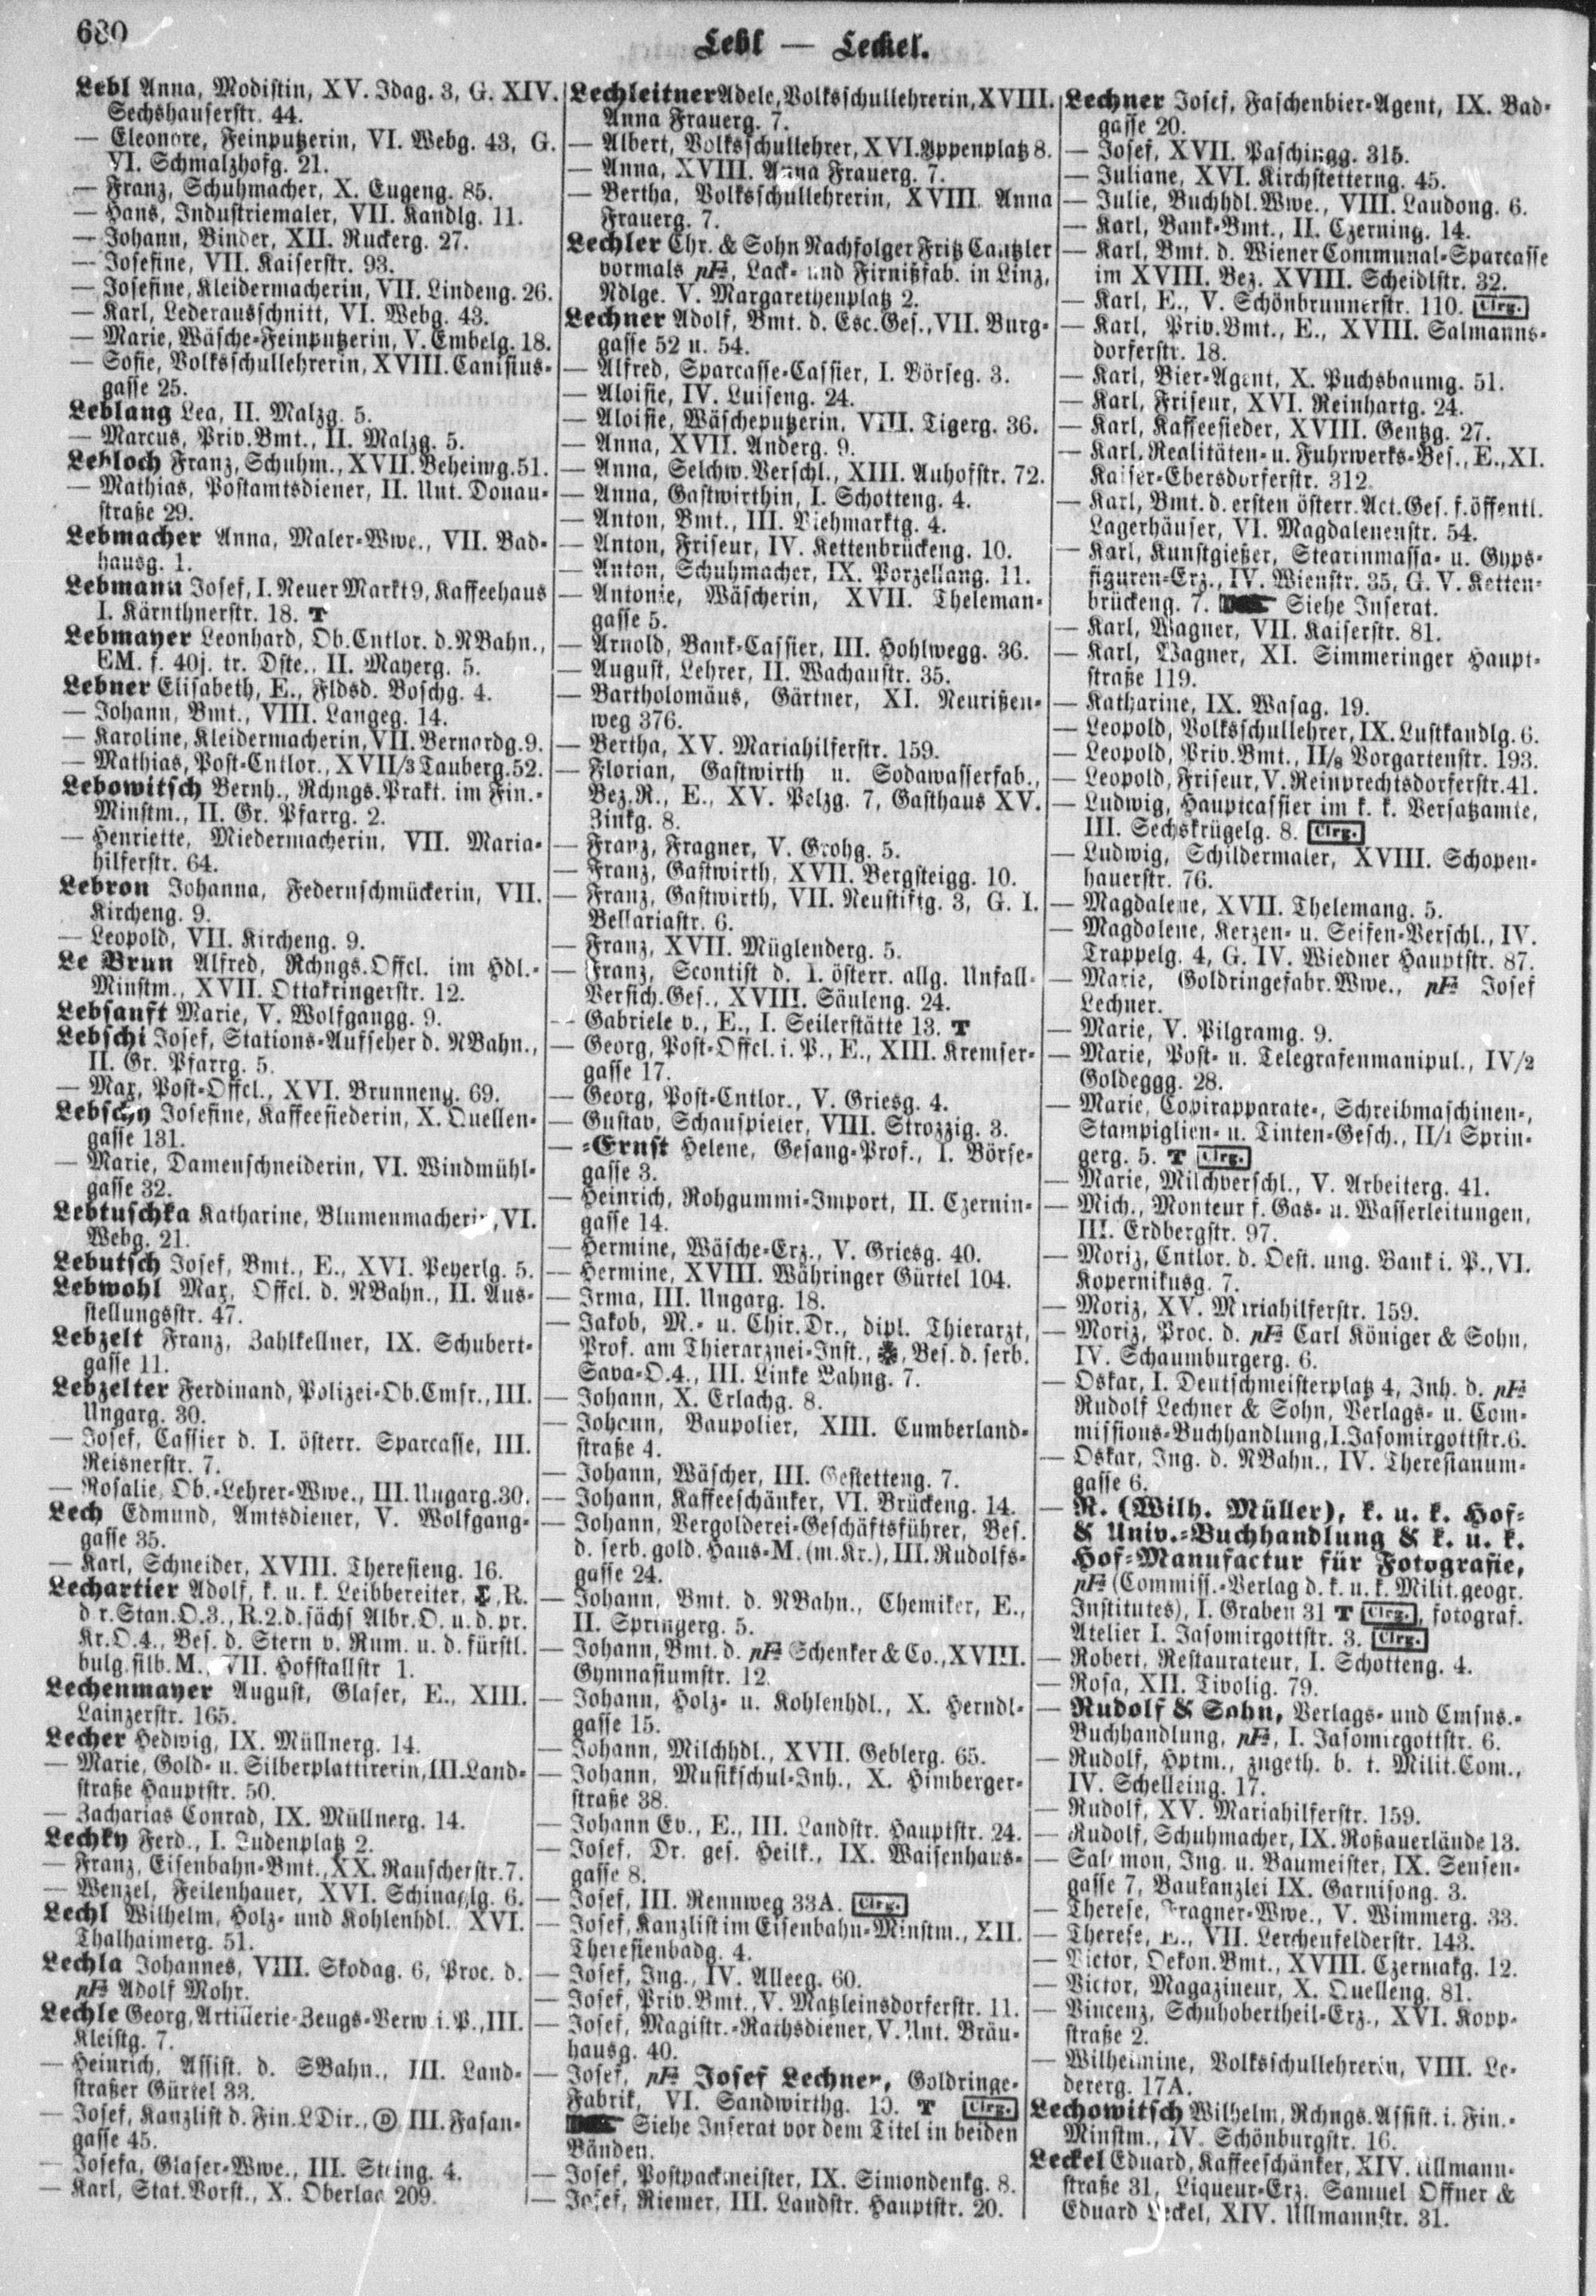 680
Lebl — Leckel.
Lebl Anna, Modistin, XV. Idag. 3, G. XIV.
Sechshauserstr. 44.
— Eleonore, Feinputzerin, VI. Webg. 43, G.
VI. Schmalzhofg. 21.
— Franz, Schuhmacher, X. Eugeng. 85.
— Hans, Industriemaler, VII. Kandlg. 11.
— Johann, Binder, XII. Ruckerg. 27.
— Josefine, VII. Kaiserstr. 93.
— Josefine, Kleidermacherin, VII. Lindeng. 26.
— Karl, Lederausschnitt, VI. Webg. 43.
— Marie, Wäsche-Feinputzerin, V. Embelg. 18.
— Sofie, Volksschullehrerin, XVIII. Canisius-
gasse 25.
Leblang Lea, II. Malzg. 5.
— Marcus, Priv.Bmt., II. Malzg. 5.
Lebloch Franz, Schuhm., XVII. Beheimg. 51.
— Mathias, Postamtsdiener, II. Unt. Donau-
straße 29.
Lebmacher Anna, Maler-Wwe., VII. Bad-
hausg. 1.
Lebmann Josef, I. Neuer Markt 9, Kaffeehaus
I. Kärnthnerstr. 18. T
Lebmayer Leonhard, Ob.Cntlor. d. NBahn.,
EM. f. 40j. tr. Dste., II. Mayerg. 5.
Lebner Elisabeth, E., Fldsd. Boschg. 4.
— Johann, Bmt., VIII. Langeg. 14.
— Karoline, Kleidermacherin, VII. Bernardg. 9.
— Mathias, Post-Cntlor., XVII/3 Tauberg. 52.
Lebowitsch Bernh., Rchngs.Prakt. im Fin.-
Minstm., II. Gr. Pfarrg. 2.
— Henriette, Miedermacherin, VII. Maria-
hilferstr. 64.
Lebron Johanna, Federnschmückerin, VII.
Kircheng. 9.
— Leopold, VII. Kircheng. 9.
Le Brun Alfred, Rchngs.Offcl. im Hdl.-
Minstm., XVII. Ottakringerstr. 12.
Lebsanft Marie, V. Wolfgangg. 9.
Lebschi Josef, Stations-Aufseher d. NBahn.,
II. Gr. Pfarrg. 5.
— Max, Post-Offcl., XVI. Brunneng. 69.
Lebschy Josefine, Kaffeesiederin, X. Quellen-
gasse 131.
— Marie, Damenschneiderin, VI. Windmühl-
gasse 32.
Lebtuschka Katharine, Blumenmacherin, VI.
Webg. 21.
Lebutsch Josef, Bmt., E., XVI. Peyerlg. 5.
Lebwohl Max, Offcl. d. NBahn., II. Aus-
stellungsstr. 47.
Lebzelt Franz, Zahlkellner, IX. Schubert-
gasse 11.
Lebzelter Ferdinand, Polizei-Ob.Cmsr., III.
Ungarg. 30.
— Josef, Cassier d. I. österr. Sparcasse, III.
Reisnerstr. 7.
— Rosalie, Ob.-Lehrer-Wwe., III. Ungarg. 30.
Lech Edmund, Amtsdiener, V. Wolfgang-
gasse 35.
— Karl, Schneider, XVIII. Theresieng. 16.
Lechartier Adolf, k. u. k. Leibbereiter, R.
d r. Stan.O.3., R.2.d.sächs Albr.O. u. d. pr.
Kr.O.4., Bes. d. Stern v. Rum. u. d. fürstl.
bulg. silb. M., VII. Hofstallstr 1.
Lechenmayer August, Glaser, E., XIII.
Lainzerstr. 165.
Lecher Hedwig, IX. Müllnerg. 14.
— Marie, Gold- u. Silberplattirerin, III. Land-
straße Hauptstr. 50.
— Zacharias Conrad, IX. Müllnerg. 14.
Lechky Ferd., I. Judenplatz 2.
— Franz, Eisenbahn-Bmt., XX. Rauscherstr. 7.
— Wenzel, Feilenhauer, XVI. Schinaglg. 6.
Lechl Wilhelm, Holz- und Kohlenhdl. XVI.
Thalhaimerg. 51.
Lechla Johannes, VIII. Skodag. 6, Proc. d.
pFa Adolf Mohr.
Lechle Georg, Artillerie-Zeugs-Verw. i. P., III.
Kleistg. 7.
— Heinrich, Assist. d. SBahn., III. Land-
straßer Gürtel 33.
— Josef, Kanzlist d. Fin.LDir., D III. Fasan-
gasse 45.
— Josefa, Glaser-Wwe., III. Steing. 4.
— Karl, Stat.Vorst., X. Oberlaa 209.
Lechleitner Adele, Volksschullehrerin, XVIII.
Anna Frauerg. 7.
— Albert, Volksschullehrer, XVI. Yppenplatz 8.
— Anna, XVIII. Anna Frauerg. 7.
— Bertha, Volksschullehrerin, XVIII. Anna
Frauerg. 7.
Lechler Chr. & Sohn Nachfolger Fritz Cantzler
vormals pFa, Lack- und Firnißfab. in Linz,
Ndlge. V. Margarethenplatz 2.
Lechner Adolf, Bmt. d. Esc.Ges., VII. Burg-
gasse 52 u. 54.
— Alfred, Sparcasse-Cassier, I. Börseg. 3.
— Aloisie, IV. Luiseng. 24.
— Aloisie, Wäscheputzerin, VIII. Tigerg. 36.
— Anna, XVII. Anderg. 9.
— Anna, Selchw.Verschl., XIII. Auhofstr. 72.
— Anna, Gastwirthin, I. Schotteng. 4.
— Anton, Bmt., III. Viehmarktg. 4.
— Anton, Friseur, IV. Kettenbrückeng. 10.
— Anton, Schuhmacher, IX. Porzellang. 11.
— Antonie, Wäscherin, XVII. Theleman-
gasse 5.
— Arnold, Bank-Cassier, III. Hohlwegg. 36.
— August, Lehrer, II. Wachaustr. 35.
— Bartholomäus, Gärtner, XI. Neurißen-
weg 376.
— Bertha, XV. Mariahilferstr. 159.
— Florian, Gastwirth u. Sodawasserfab.,
Bez.R., E., XV. Pelzg. 7, Gasthaus XV.
Zinkg. 8.
— Franz, Fragner, V. Grohg. 5.
— Franz, Gastwirth, XVII. Bergsteigg. 10.
— Franz, Gastwirth, VII. Neustiftg. 3, G. I.
Bellariastr. 6.
— Franz, XVII. Müglenderg. 5.
— Franz, Scontist d. I. österr. allg. Unfall-
Versich.Ges., XVIII. Säuleng. 24.
— Gabriele v., E., I. Seilerstätte 13. T
— Georg, Post-Offcl. i. P., E., XIII. Kremser-
gasse 17.
— Georg, Post-Cntlor., V. Griesg. 4.
— Gustav, Schauspieler, VIII. Strozzig. 3.
— -Ernst Helene, Gesang-Prof., I. Börse-
gasse 3.
— Heinrich, Rohgummi-Import, II. Czernin-
gasse 14.
— Hermine, Wäsche-Erz., V. Griesg. 40.
— Hermine, XVIII. Währinger Gürtel 104.
— Irma, III. Ungarg. 18.
— Jakob, M.- u. Chir.Dr., dipl. Thierarzt,
Prof. am Thierarznei-Inst., Bes. d. serb.
Sava-O.4., III. Linke Bahng. 7.
— Johann, X. Erlachg. 8.
— Johann, Baupolier, XIII. Cumberland-
straße 4.
— Johann, Wäscher, III. Gestetteng. 7.
— Johann, Kaffeeschänker, VI. Brückeng. 14.
— Johann, Vergolderei-Geschäftsführer, Bes.
d. serb. gold. Haus-M. (m.Kr.), III. Rudolfs-
gasse 24.
— Johann, Bmt. d. NBahn., Chemiker, E.,
II. Springerg. 5.
— Johann, Bmt. d. pFa Schenker & Co., XVIII.
Gymnasiumstr. 12.
— Johann, Holz- u. Kohlenhdl., X. Herndl-
gasse 15.
— Johann, Milchhdl., XVII. Geblerg. 65.
— Johann, Musikschul-Inh., X. Himberger-
straße 38.
— Johann Ev., E., III. Landstr. Hauptstr. 24.
— Josef, Dr. ges. Heilk., IX. Waisenhaus-
gasse 8.
— Josef, III. Rennweg 33A. Clrg.
— Josef, Kanzlist im Eisenbahn-Minstm., XII.
Theresienbadg. 4.
— Josef, Ing., IV. Alleeg. 60.
— Josef, Priv.Bmt., V. Matzleinsdorferstr. 11.
— Josef, Magistr.-Rathsdiener, V. Unt. Bräu-
hausg. 40.
— Josef, pFa Josef Lechner, Goldringe-
Fabrik, VI. Sandwirthg. T Clrg.
Siehe Inserat vor dem Titel in beiden
Bänden.
— Josef, Postpackmeister, IX. Simondenkg. 8.
— Josef, Riemer, III. Landstr. Hauptstr. 20.
Lechner Josef, Faschenbier-Agent, IX. Bad-
gasse 20.
— Josef, XVII. Paschingg. 315.
— Juliane, XVI. Kirchstetterng. 45.
— Julie, Buchhdl.Wwe., VIII. Laudong. 6.
— Karl, Bank-Bmt., II. Czerning. 14.
— Karl, Bmt. d. Wiener Communal-Sparcasse
im XVIII. Bez. XVIII. Scheidlstr. 32.
— Karl, E., V. Schönbrunnerstr. 110. Clrg.
— Karl, Priv.Bmt., E., XVIII. Salmanns-
dorferstr. 18.
— Karl, Bier-Agent, X. Puchsbaumg. 51.
— Karl, Friseur, XVI. Reinhartg. 24.
— Karl, Kaffeesieder, XVIII. Gentzg. 27.
— Karl, Realitäten- u. Fuhrwerks-Bes., E., XI.
Kaiser-Ebersdorferstr. 312.
— Karl, Bmt. d. ersten österr. Act.Ges. f. öffentl.
Lagerhäuser, VI. Magdalenenstr. 54.
— Karl, Kunstgießer, Stearinmassa- u. Gyps-
figuren-Erz., IV. Wienstr. 35, G. V. Ketten-
brückeng. 7. Siehe Inserat.
— Karl, Wagner, VII. Kaiserstr. 81.
— Karl, Wagner, XI. Simmeringer Haupt-
straße 119.
— Katharine, IX. Wasag. 19.
— Leopold, Volksschullehrer, IX. Lustkandlg. 6.
— Leopold, Priv.Bmt., II/8 Vorgartenstr. 193.
— Leopold, Friseur, V. Reinprechtsdorferstr. 41.
— Ludwig, Hauptcassier im k. k. Versatzamte,
III. Sechskrügelg. 8. Clrg.
— Ludwig, Schildermaler, XVIII. Schopen-
hauerstr. 76.
— Magdalene, XVII. Thelemang. 5.
— Magdalene, Kerzen- u. Seifen-Verschl., IV.
Trappelg. 4, G. IV. Wiedner Hauptstr. 87.
— Marie, Goldringefabr.Wwe., pFa Josef
Lechner.
— Marie, V. Pilgramg. 9.
— Marie, Post- u. Telegrafenmanipul., IV/2
Goldeggg. 28.
— Marie, Copirapparate-, Schreibmaschinen-,
Stampiglien- u. Tinten-Gesch., II/1 Sprin-
gerg. 5. T Clrg.
— Marie, Milchverschl., V. Arbeiterg. 41.
— Mich., Monteur f. Gas- u. Wasserleitungen,
III. Erdbergstr. 97.
— Moriz, Cntlor. d. Oest. ung. Bank i. P., VI.
Kopernikusg. 7.
— Moriz, XV. Mariahilferstr. 159.
— Moriz, Proc. d. pFa Carl Königer & Sohn,
IV. Schaumburgerg. 6.
— Oskar, I. Deutschmeisterplatz 4, Inh. d. pFa
Rudolf Lechner & Sohn, Verlags- u. Com-
missions-Buchhandlung, I. Jasomirgottstr. 6.
— Oskar, Ing. d. NBahn., IV. Theresianum-
gasse 6.
— R. (Wilh. Müller), k. u. k. Hof-
& Univ.-Buchhandlung & k. u. k.
Hof-Manufactur für Fotografie,
pFa (Commiss.-Verlag d. k. u. k. Milit.geogr.
Institutes), I. Graben 31 T Clrg., fotograf.
Atelier I. Jasomirgottstr. 3. Clrg.
— Robert, Restaurateur, I. Schotteng. 4.
— Rosa, XII. Tivolig. 79.
— Rudolf & Sohn, Verlags- und Cmsns.-
Buchhandlung, pFa, I. Jasomirgottstr. 6.
— Rudolf, Hptm., zugeth. b. t. Milit.Com.,
IV. Schelleing. 17.
— Rudolf, XV. Mariahilferstr. 159.
— Rudolf, Schuhmacher, IX. Roßauerlände 13.
— Salomon, Ing. u. Baumeister, IX. Sensen-
gasse 7, Baukanzlei IX. Garnisong. 3.
— Therese, Fragner-Wwe., V. Wimmerg. 33.
— Therese, E., VII. Lerchenfelderstr. 143.
— Victor, Oekon.Bmt., XVIII. Czermakg. 12.
— Victor, Magazineur, X. Quelleng. 81.
— Vincenz, Schuhobertheil-Erz., XVI. Kopp-
straße 2.
— Wilhelmine, Volksschullehrerin, VIII. Le-
dererg. 17A.
Lechowitsch Wilhelm, Rchngs.Assist. i. Fin.-
Minstm., IV. Schönburgstr. 16.
Leckel Eduard, Kaffeeschänker, XIV. Ullmann-
straße 31, Liqueur-Erz. Samuel Offner &
Eduard Leckel, XIV. Ullmannstr. 31.